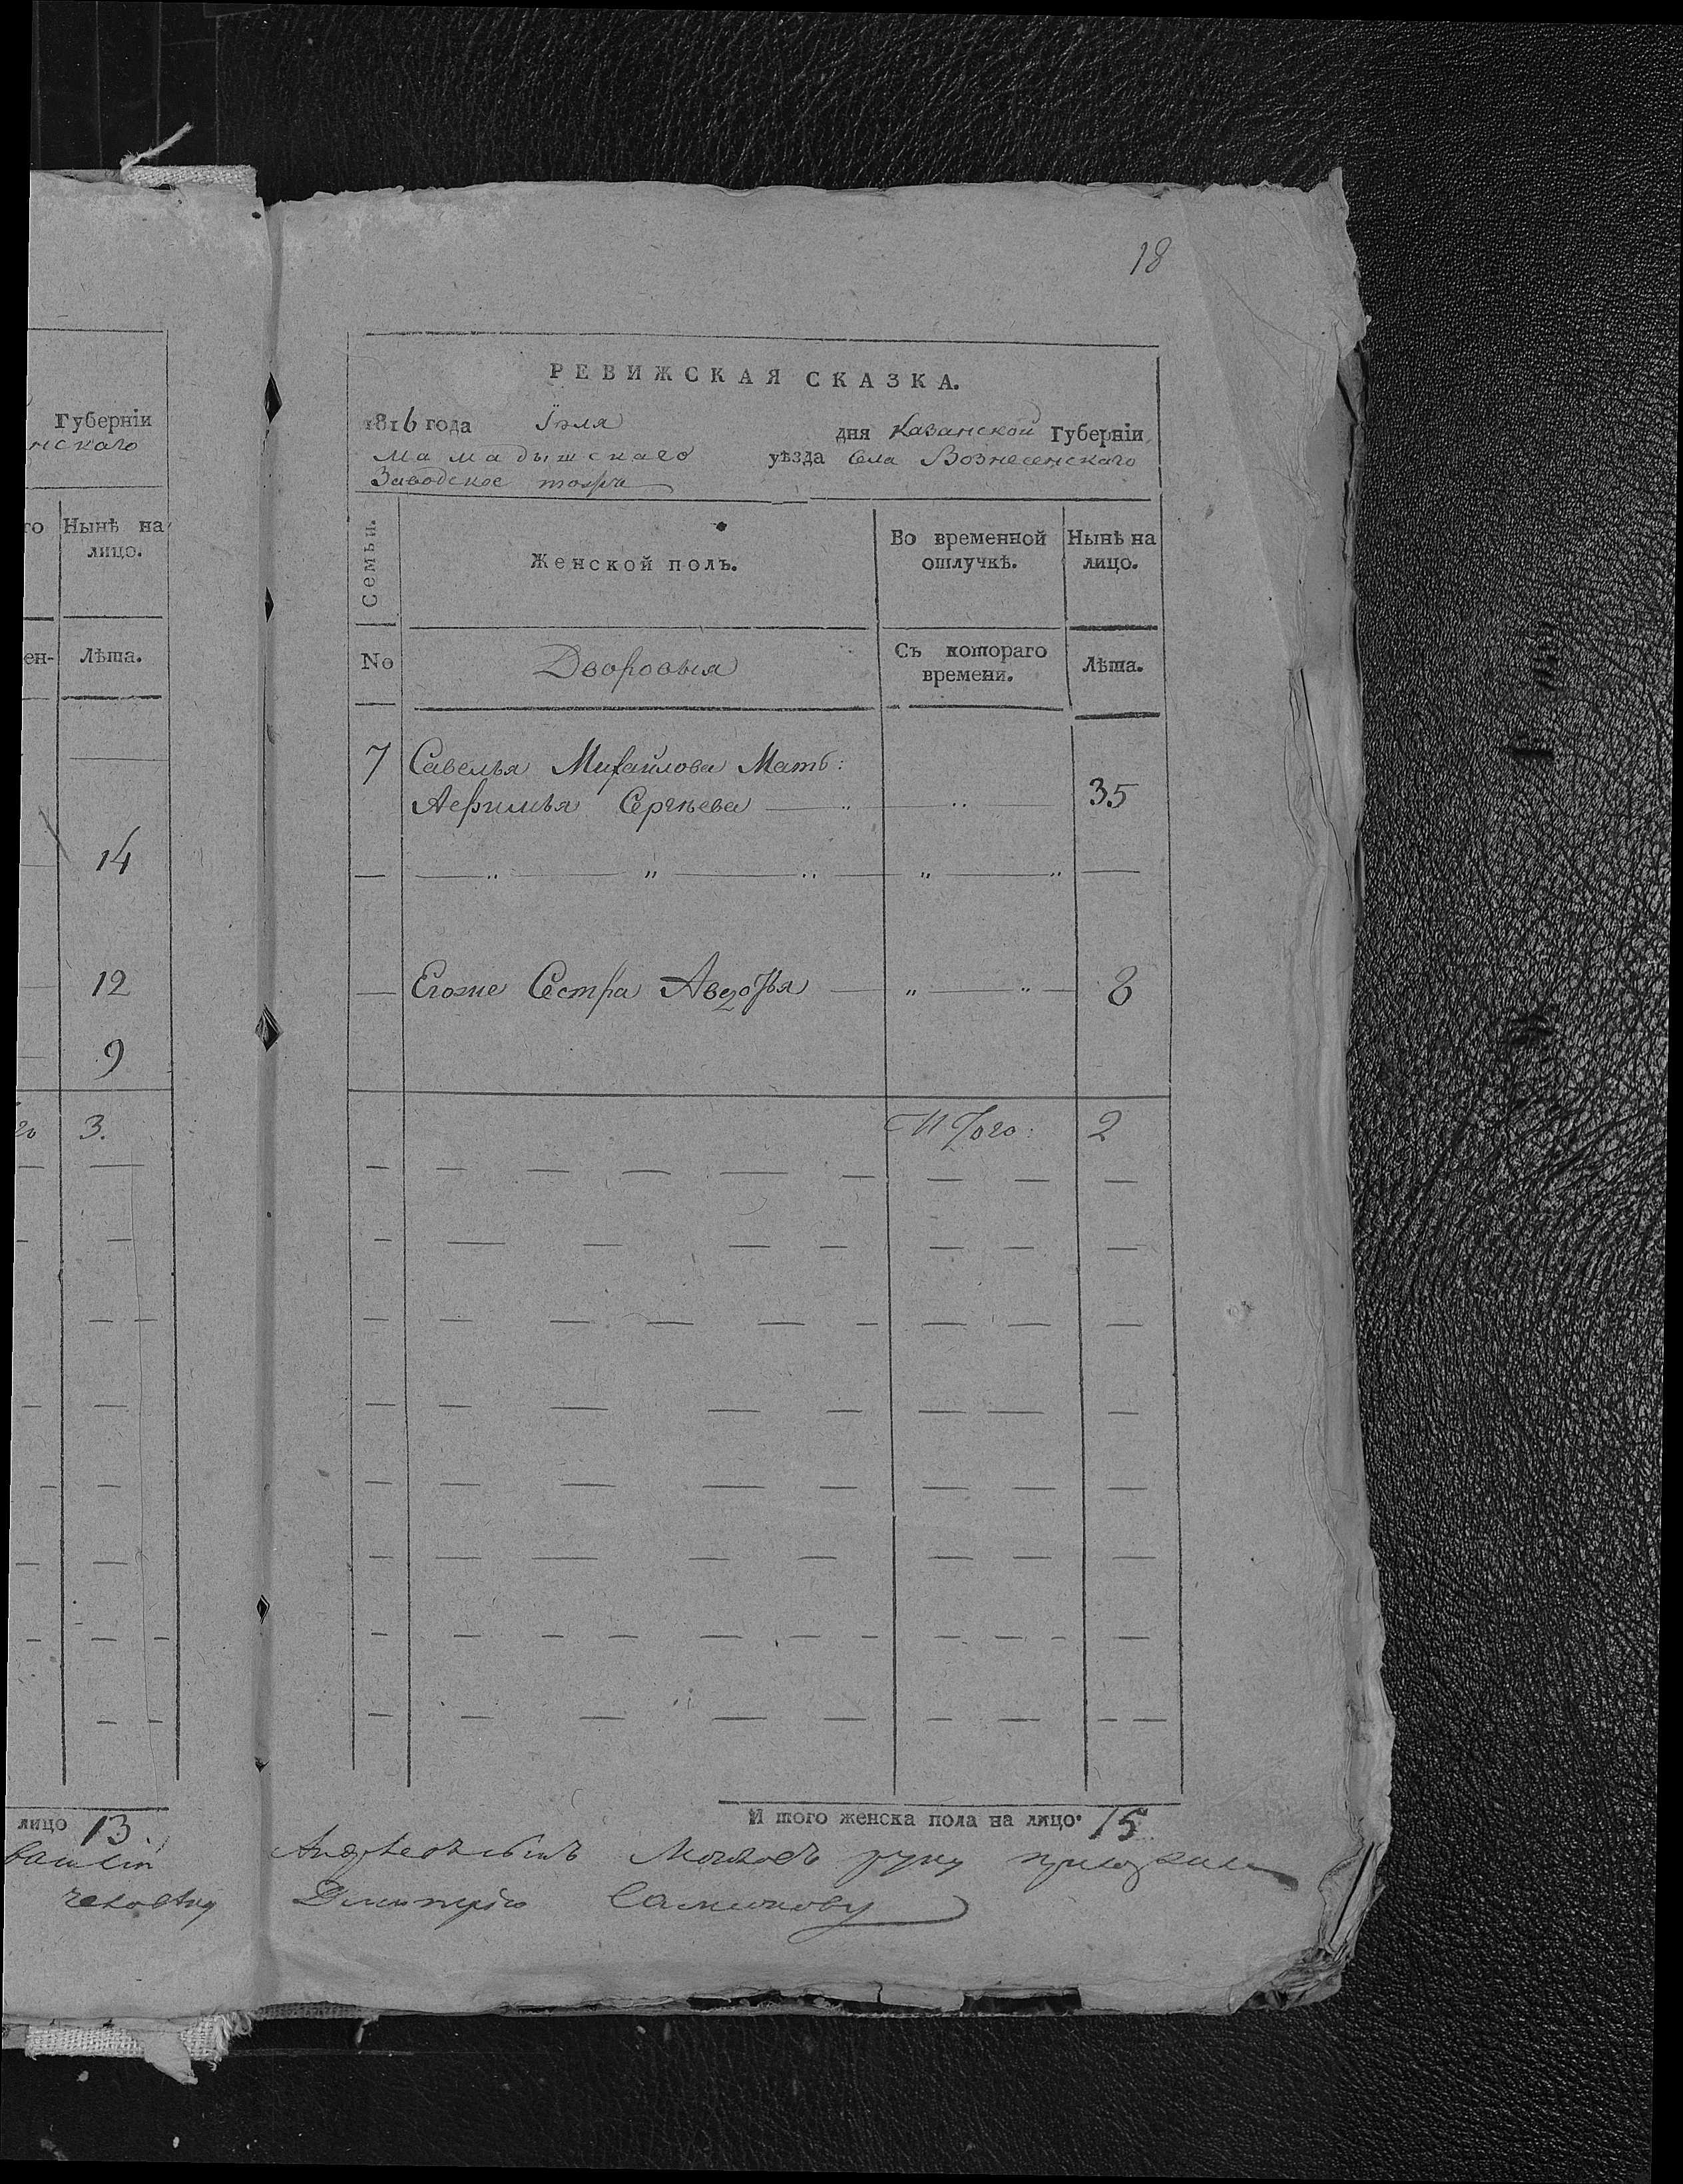 Губерніи
нскаго
го Нынѣ на
лицо.
ен- Лѣта.
14
12
9
го 3.
лицо 13.
18
РЕВИЖСКАЯ СКАЗКА.
1816 года Іюля дня Казанской Губерніи
Мамадышскаго уѣзда Села Вознесенскаго
Заводское тожъ
Семьи. Женской полъ. Во временной отлучкѣ. Нынѣ на лицо.
No Дворовыя Съ котораго времени. Лѣта.
7 Савелья Михайлова Мать:
Аефимья Сергѣева 35
Егоже Сестра Авдотья 8
Итого: 2
И того женска пола на лицо 15
руку приложилъ
Дмитрію